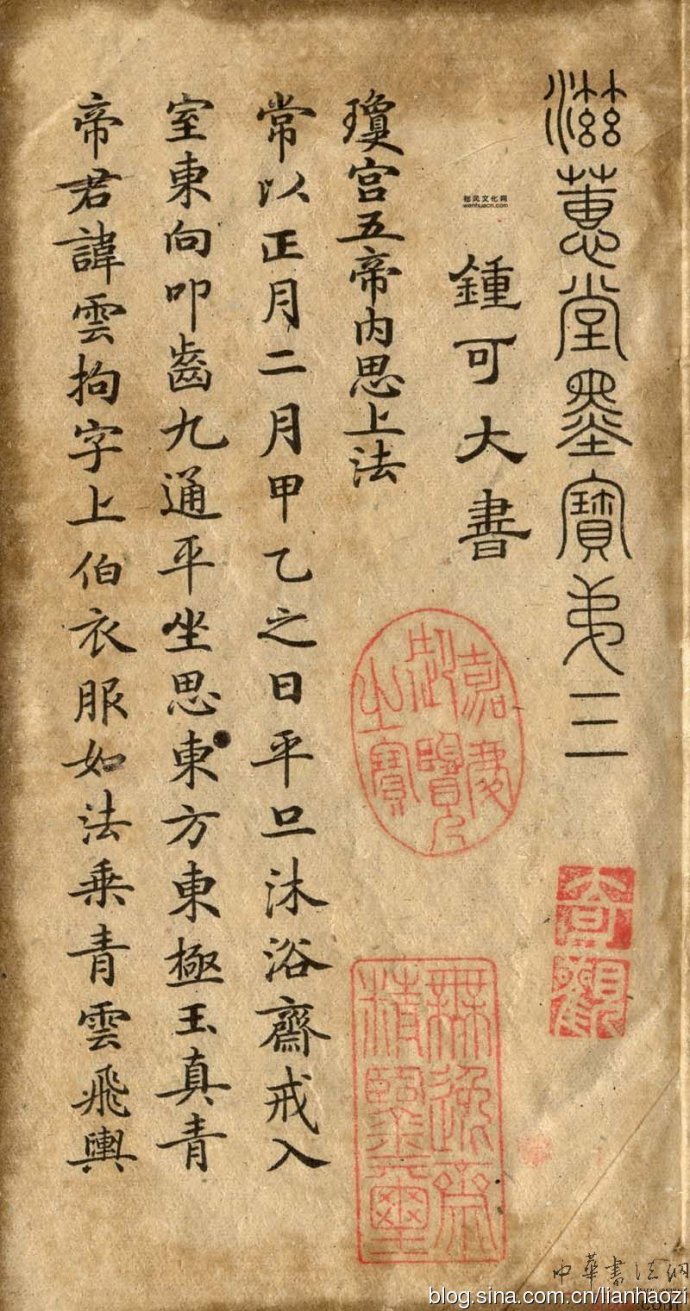 滋蕙堂墨寶弟三
鍾可大書
瓊宫五帝内思上法
常以正月二月甲乙之日平旦沐浴齋戒入
室東向叩齒九通平坐思東方東極玉真青
帝君諱雲拘字上伯衣服如法乗青雲飛輿
嘉慶御覽之寶
奇觀
無逸齋精鑒璽
中華書法網
blog.sina.com.cn/lianhaozi
wenhuacn.com